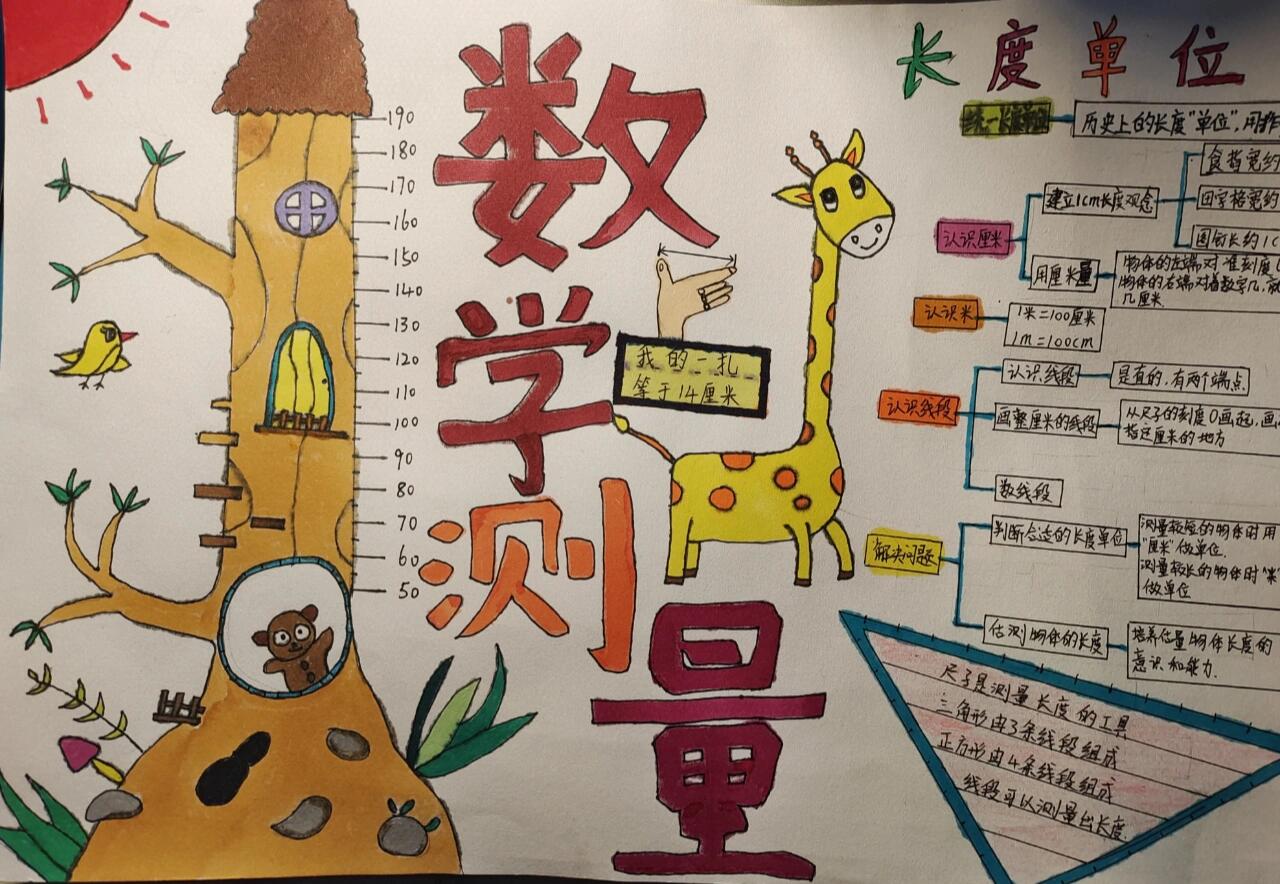 数
学
测
量
190
180
170
160
150
140
130
120
110
100
90
80
70
60
50
我的一扎
等于14厘米
长度单位
统一长度单位
历史上的长度"单位",用
认识厘米
建立1cm长度观念
食指宽约
田字格宽约
图钉长约1c
用厘米量
物体的左端对准刻度
物体的右端对着数字几,就
几厘米
认识米
1米=100厘米
1m=100cm
认识线段
认识线段
是直的,有两个端点.
画整厘米的线段
从尺子的刻度0画起,画
指定厘米的地方
数线段
解决问题
判断合适的长度单位
测量较短的物体时用
"厘米"做单位.
测量较长的物体时"米"
做单位
估测物体的长度
培养估量物体长度的
意识和能力.
尺子是测量长度的工具
三角形由3条线段组成
正方形由4条线段组成
线段可以测量出长度.